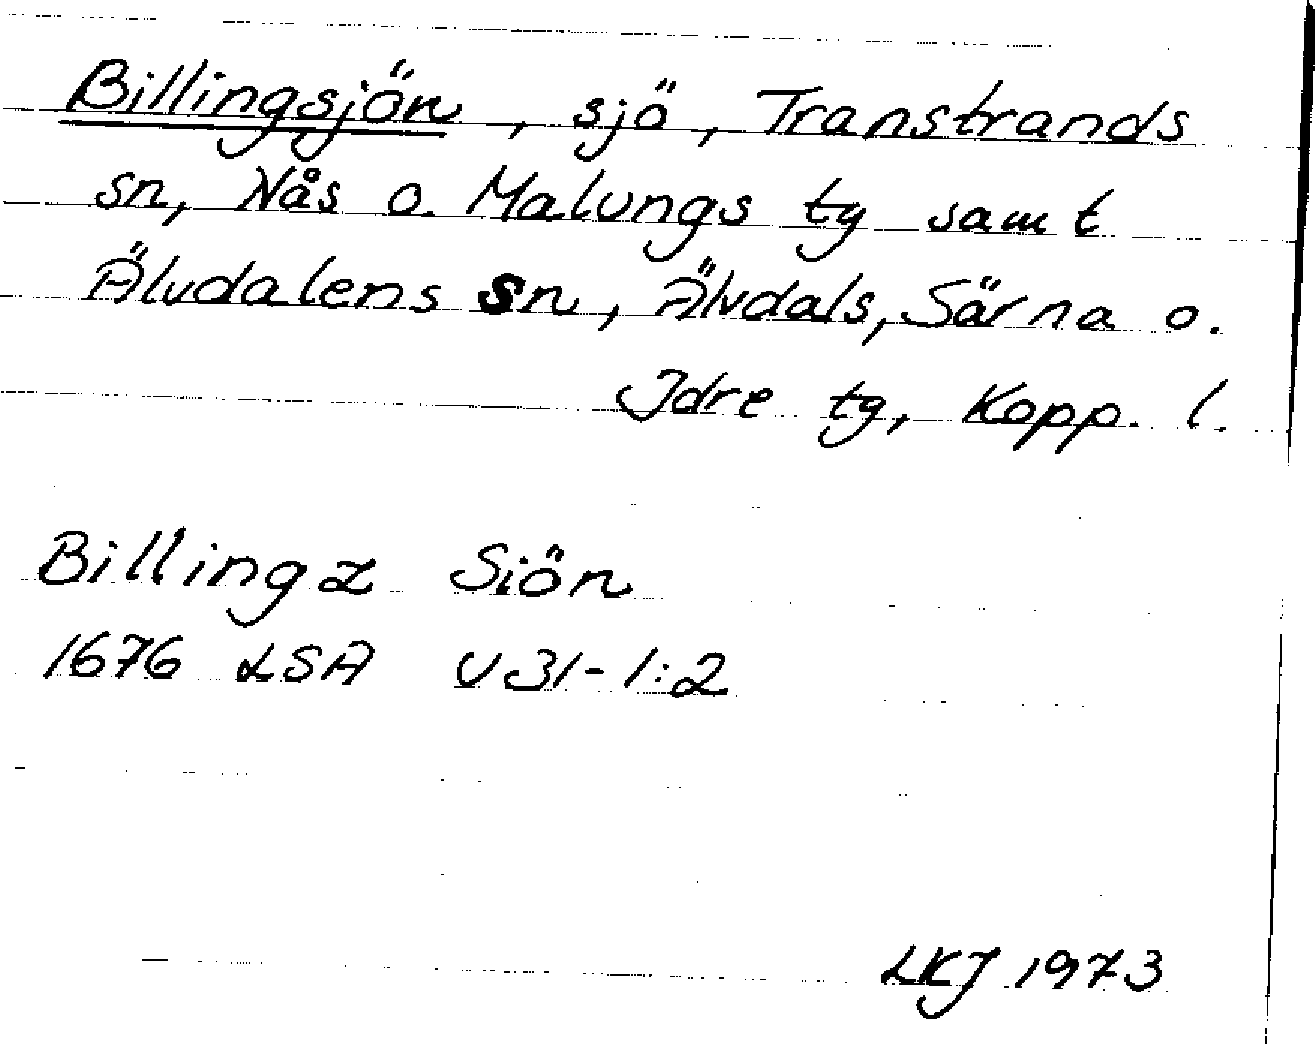 Billingsjön, sjö, Transtrands
sn, Nås o. Malungs tg samt
Älvdalens sn, Älvdals, Särna o.
Idre tg, Kopp. l.
Billingz Siön
1676 LSA U31-1:2
LKJ 1973